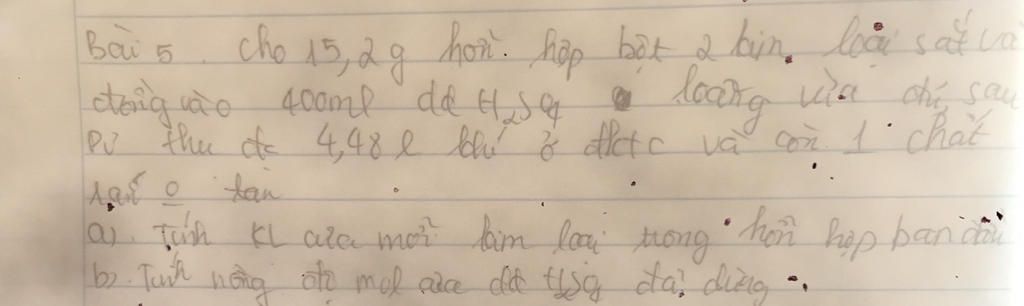 Bài 5. Cho 15,2g hỗn hợp bột 2 kim loại sắt và
đồng vào 400ml dd H₂SO₄ loãng vừa đủ, sau
pư thu đc 4,48 l khí ở đktc và còn 1 chất
rắn o tan
a). Tính KL của mỗi kim loại trong hỗn hợp ban đầu
b). Tính nồng độ mol của dd H₂SO₄ đã dùng.